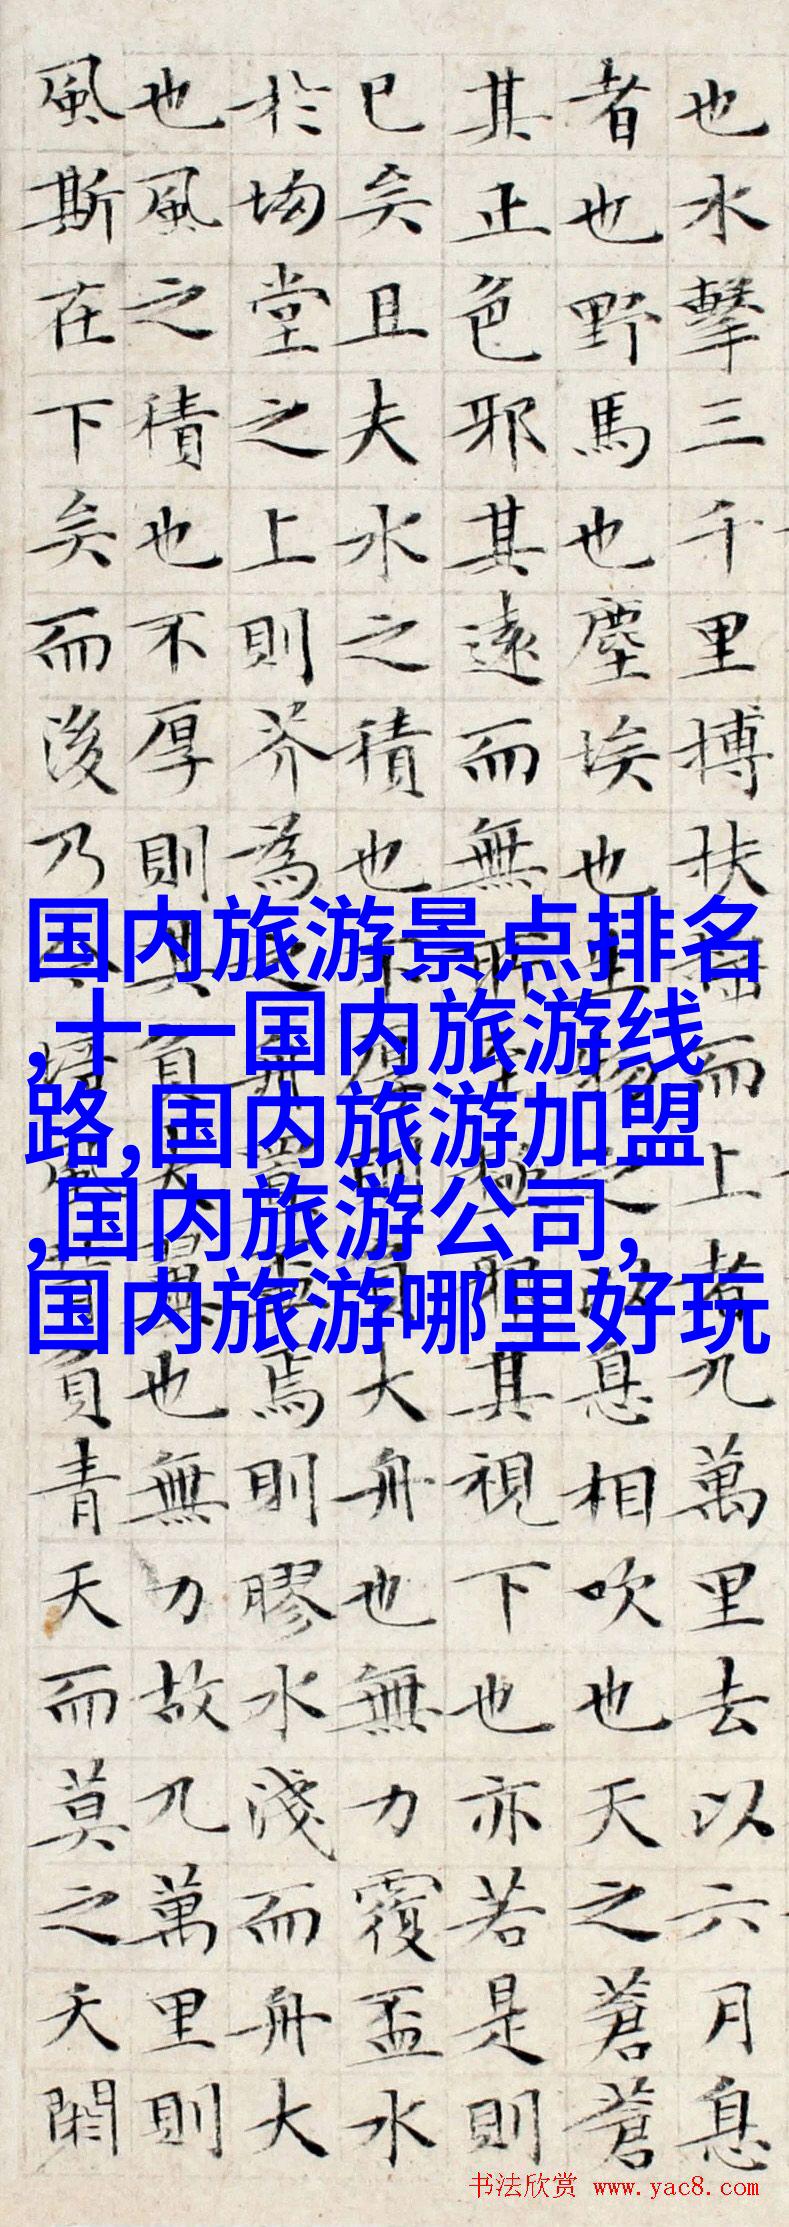 也水擊三千里搏扶摇而上者九萬里去以六月息
者也野馬也塵埃也生物之以息相吹也天之蒼蒼
其正色邪其遠而無所至極邪其視下也亦若是則
已矣且夫水之積也不厚則負大舟也無力覆盃水
於坳堂之上則芥為之舟置盃焉則膠水淺而舟大
也風之積也不厚則其負大翼也無力故九萬里則
風斯在下矣而後乃今培風背負青天而莫之夭閼
国内旅游景点排名
,十一国内旅游线
路,国内旅游加盟
,国内旅游公司,
国内旅游哪里好玩
书法欣赏 www.yac8.com